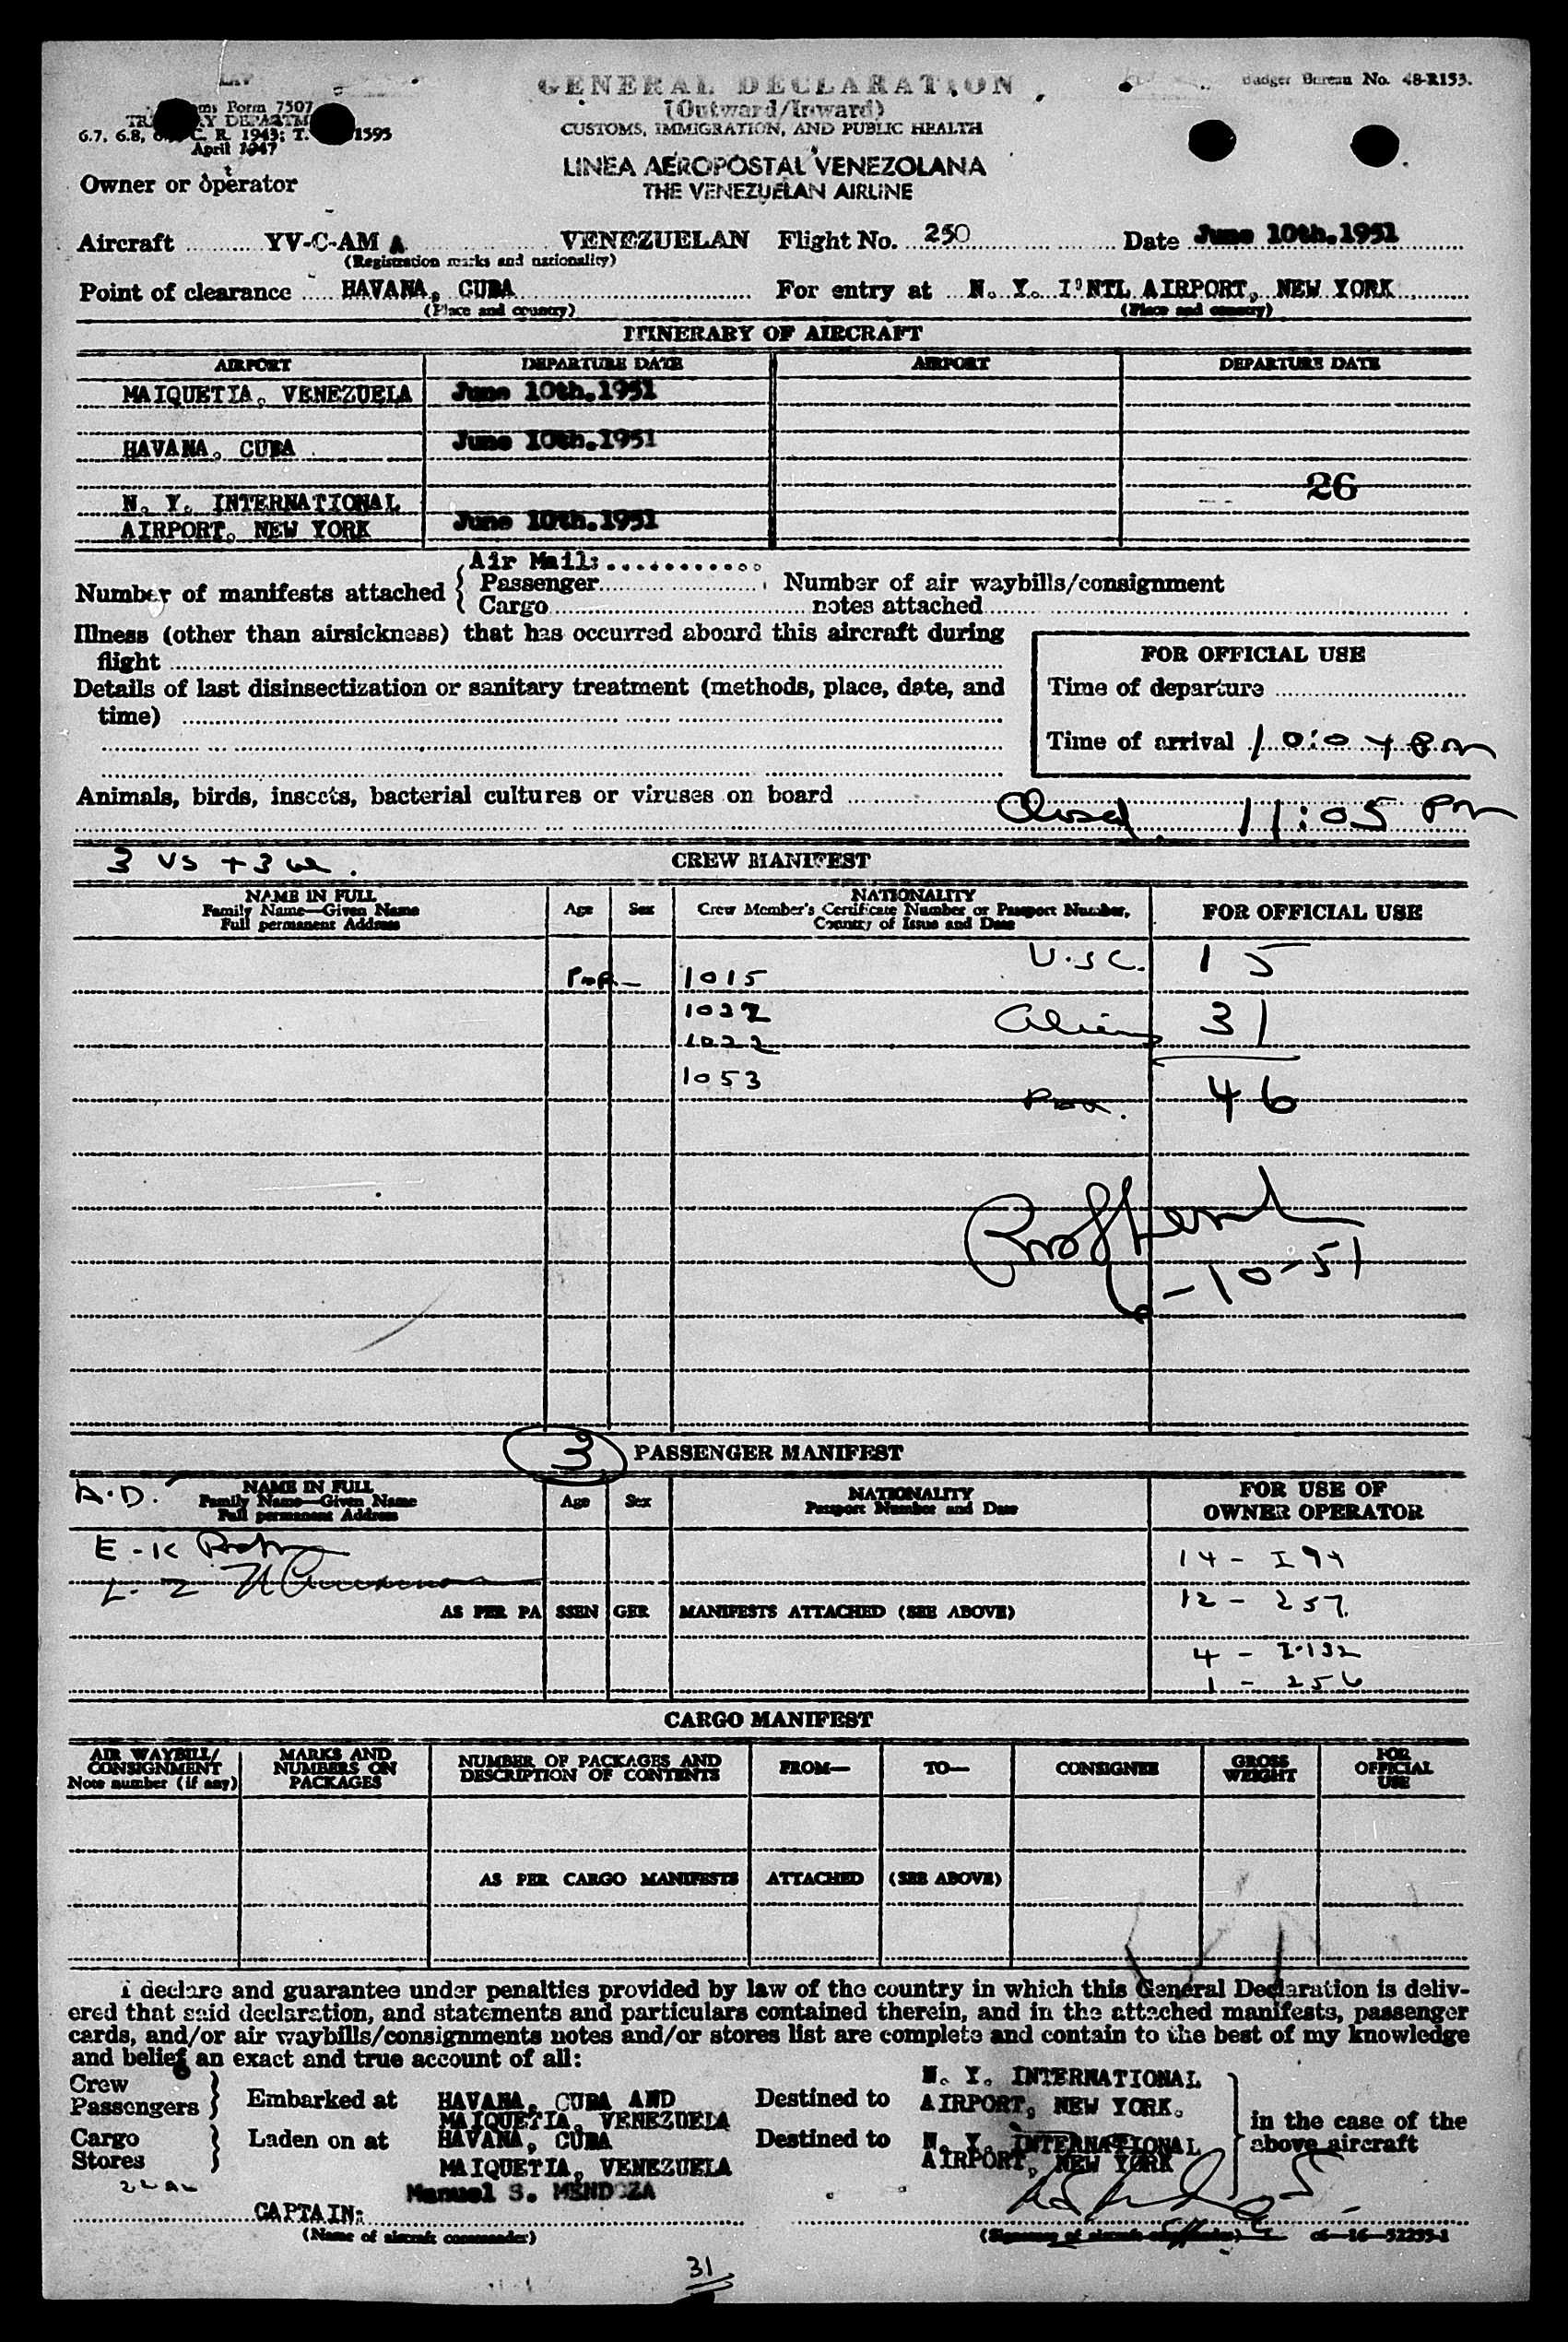 GENERAL DECLARATION
Budget Bureau No. 48-R153.
(Outward/Inward)
Form 7507
CUSTOMS, IMMIGRATION, AND PUBLIC HEALTH
6.7, 6.8, C. R. 1943; T. 1595
April 1947
LINEA AEROPOSTAL VENEZOLANA
THE VENEZUELAN AIRLINE
Owner or operator
Aircraft YV-C-AM A VENEZUELAN Flight No. 250 Date June 10th.1951
(Registration marks and nationality)
Point of clearance HAVANA, CUBA For entry at N. Y. I'NTL AIRPORT, NEW YORK
(Place and country) (Place and country)
ITINERARY OF AIRCRAFT
AIRPORT DEPARTURE DATE AIRPORT DEPARTURE DATE
MAIQUETIA, VENEZUELA June 10th.1951
HAVANA, CUBA June 10th.1951
26
N. Y. INTERNATIONAL
AIRPORT, NEW YORK June 10th.1951
Air Mail:
Number of manifests attached Passenger Number of air waybills/consignment
Cargo notes attached
Illness (other than airsickness) that has occurred aboard this aircraft during
flight
FOR OFFICIAL USE
Details of last disinsectization or sanitary treatment (methods, place, date, and
time)
Time of departure
Time of arrival 10:04 Pm
Animals, birds, insects, bacterial cultures or viruses on board
Closed 11:05 Pm
3 US + 3
CREW MANIFEST
NAME IN FULL
Family Name—Given Name
Full permanent Address
Age Sex
NATIONALITY
Crew Member's Certificate Number or Passport Number,
Country of Issue and Date
FOR OFFICIAL USE
U.S.C. 15
1015
1022
Alien 31
1022
1053
46
6-10-51
3 PASSENGER MANIFEST
A.D.
NAME IN FULL
Family Name—Given Name
Full permanent Address
Age Sex
NATIONALITY
Passport Number and Date
FOR USE OF
OWNER OPERATOR
E-K
14 - I 94
L-Z
12 - 257
AS PER PASSENGER MANIFESTS ATTACHED (SEE ABOVE)
4 - I-132
1 - 256
CARGO MANIFEST
AIR WAYBILL/
CONSIGNMENT
Note number (if any)
MARKS AND
NUMBERS ON
PACKAGES
NUMBER OF PACKAGES AND
DESCRIPTION OF CONTENTS
FROM— TO— CONSIGNEE
GROSS
WEIGHT
FOR
OFFICIAL
USE
AS PER CARGO MANIFESTS ATTACHED (SEE ABOVE)
I declare and guarantee under penalties provided by law of the country in which this General Declaration is deliv-
ered that said declaration, and statements and particulars contained therein, and in the attached manifests, passenger
cards, and/or air waybills/consignments notes and/or stores list are complete and contain to the best of my knowledge
and belief an exact and true account of all:
Crew
Passengers
Embarked at HAVANA, CUBA AND
MAIQUETIA, VENEZUELA
Destined to N. Y. INTERNATIONAL
AIRPORT, NEW YORK.
Cargo
Stores
Laden on at HAVANA, CUBA
MAIQUETIA, VENEZUELA
Destined to N. Y. INTERNATIONAL
AIRPORT, NEW YORK
in the case of the
above aircraft
Manuel S. MENDOZA
CAPTAIN:
(Name of aircraft commander)
(Signature of aircraft commander) c6—16—52295-1
31